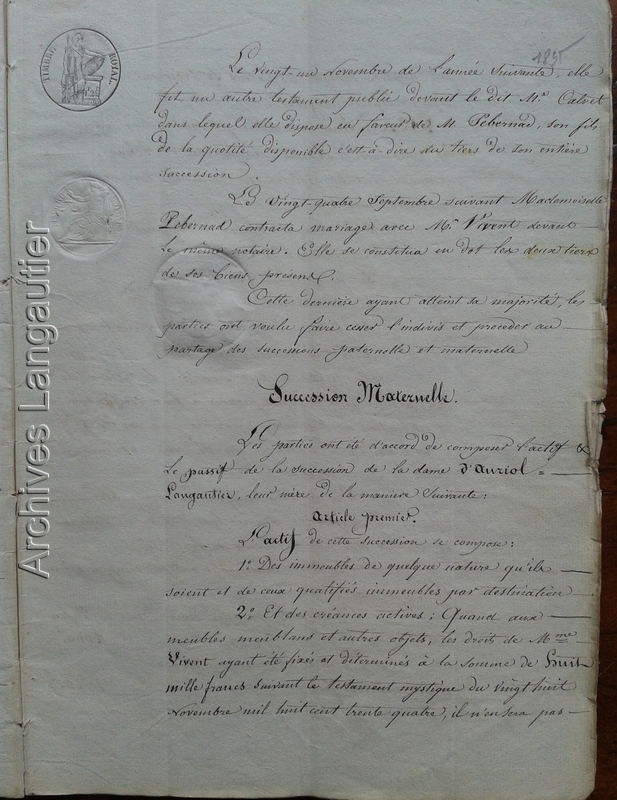 TIMBRE ROYAL.
1835
Le vingt-un Novembre de l'année suivante, elle
fit un autre testament public devant le dit Me. Calvet
dans lequel elle dispose en faveur de M. Pebernad, son fils,
de la quotité disponible c'est-à-dire du tiers de son entière
succession.
Le vingt-quatre Septembre suivant Mademoiselle
Pebernad contracta mariage avec Mr. Vivent devant
le même notaire. Elle se constitua en dot les deux tiers
de ses biens présens.
Cette dernière ayant atteint sa majorité, les
parties ont voulu faire cesser l'indivis et procéder au
partage des successions paternelle et maternelle
Succession Maternelle.
Les parties ont été d'accord de composer l'actif &
le passif de la succession de la dame d'Auriol =
Langautier, leur mère de la manière suivante :
article premier.
L'actif de cette succession se compose :
1o. Des immeubles de quelque nature qu'ils
soient et de ceux qualifiés immeubles par destination
2o. Et des créances actives : Quand aux
meubles meublans et autres objets, les droits de Mme
Vivent ayant été fixés et déterminés à la somme de huit
mille francs suivant le testament mystique du vingt huit
Novembre mil huit cent trente quatre, il n'en sera pas
Archives Langautier